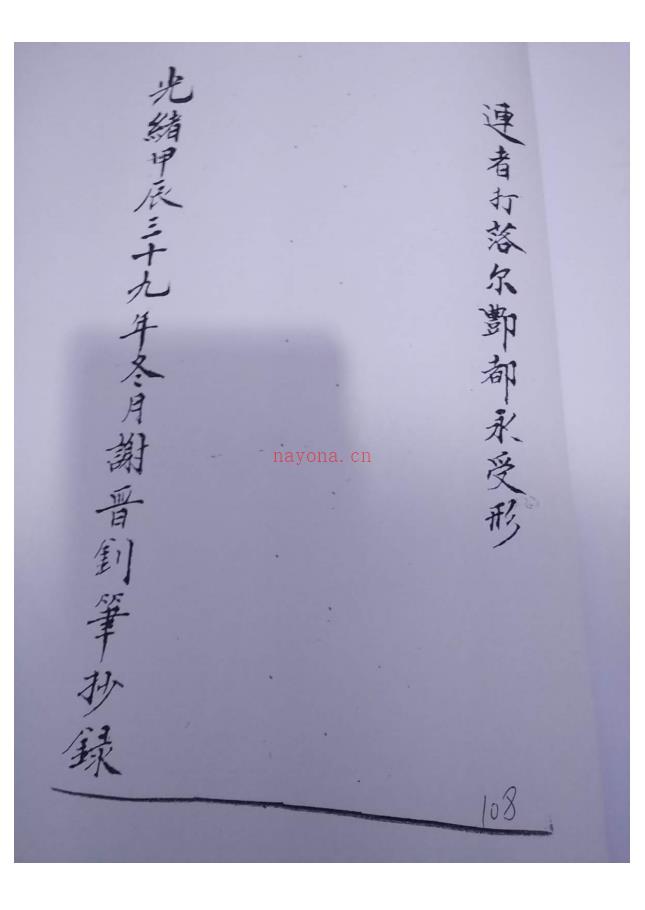 連者打落尔酆都永受形
光緒甲辰三十九年冬月謝晋釗筆抄錄
nayona.cn
108